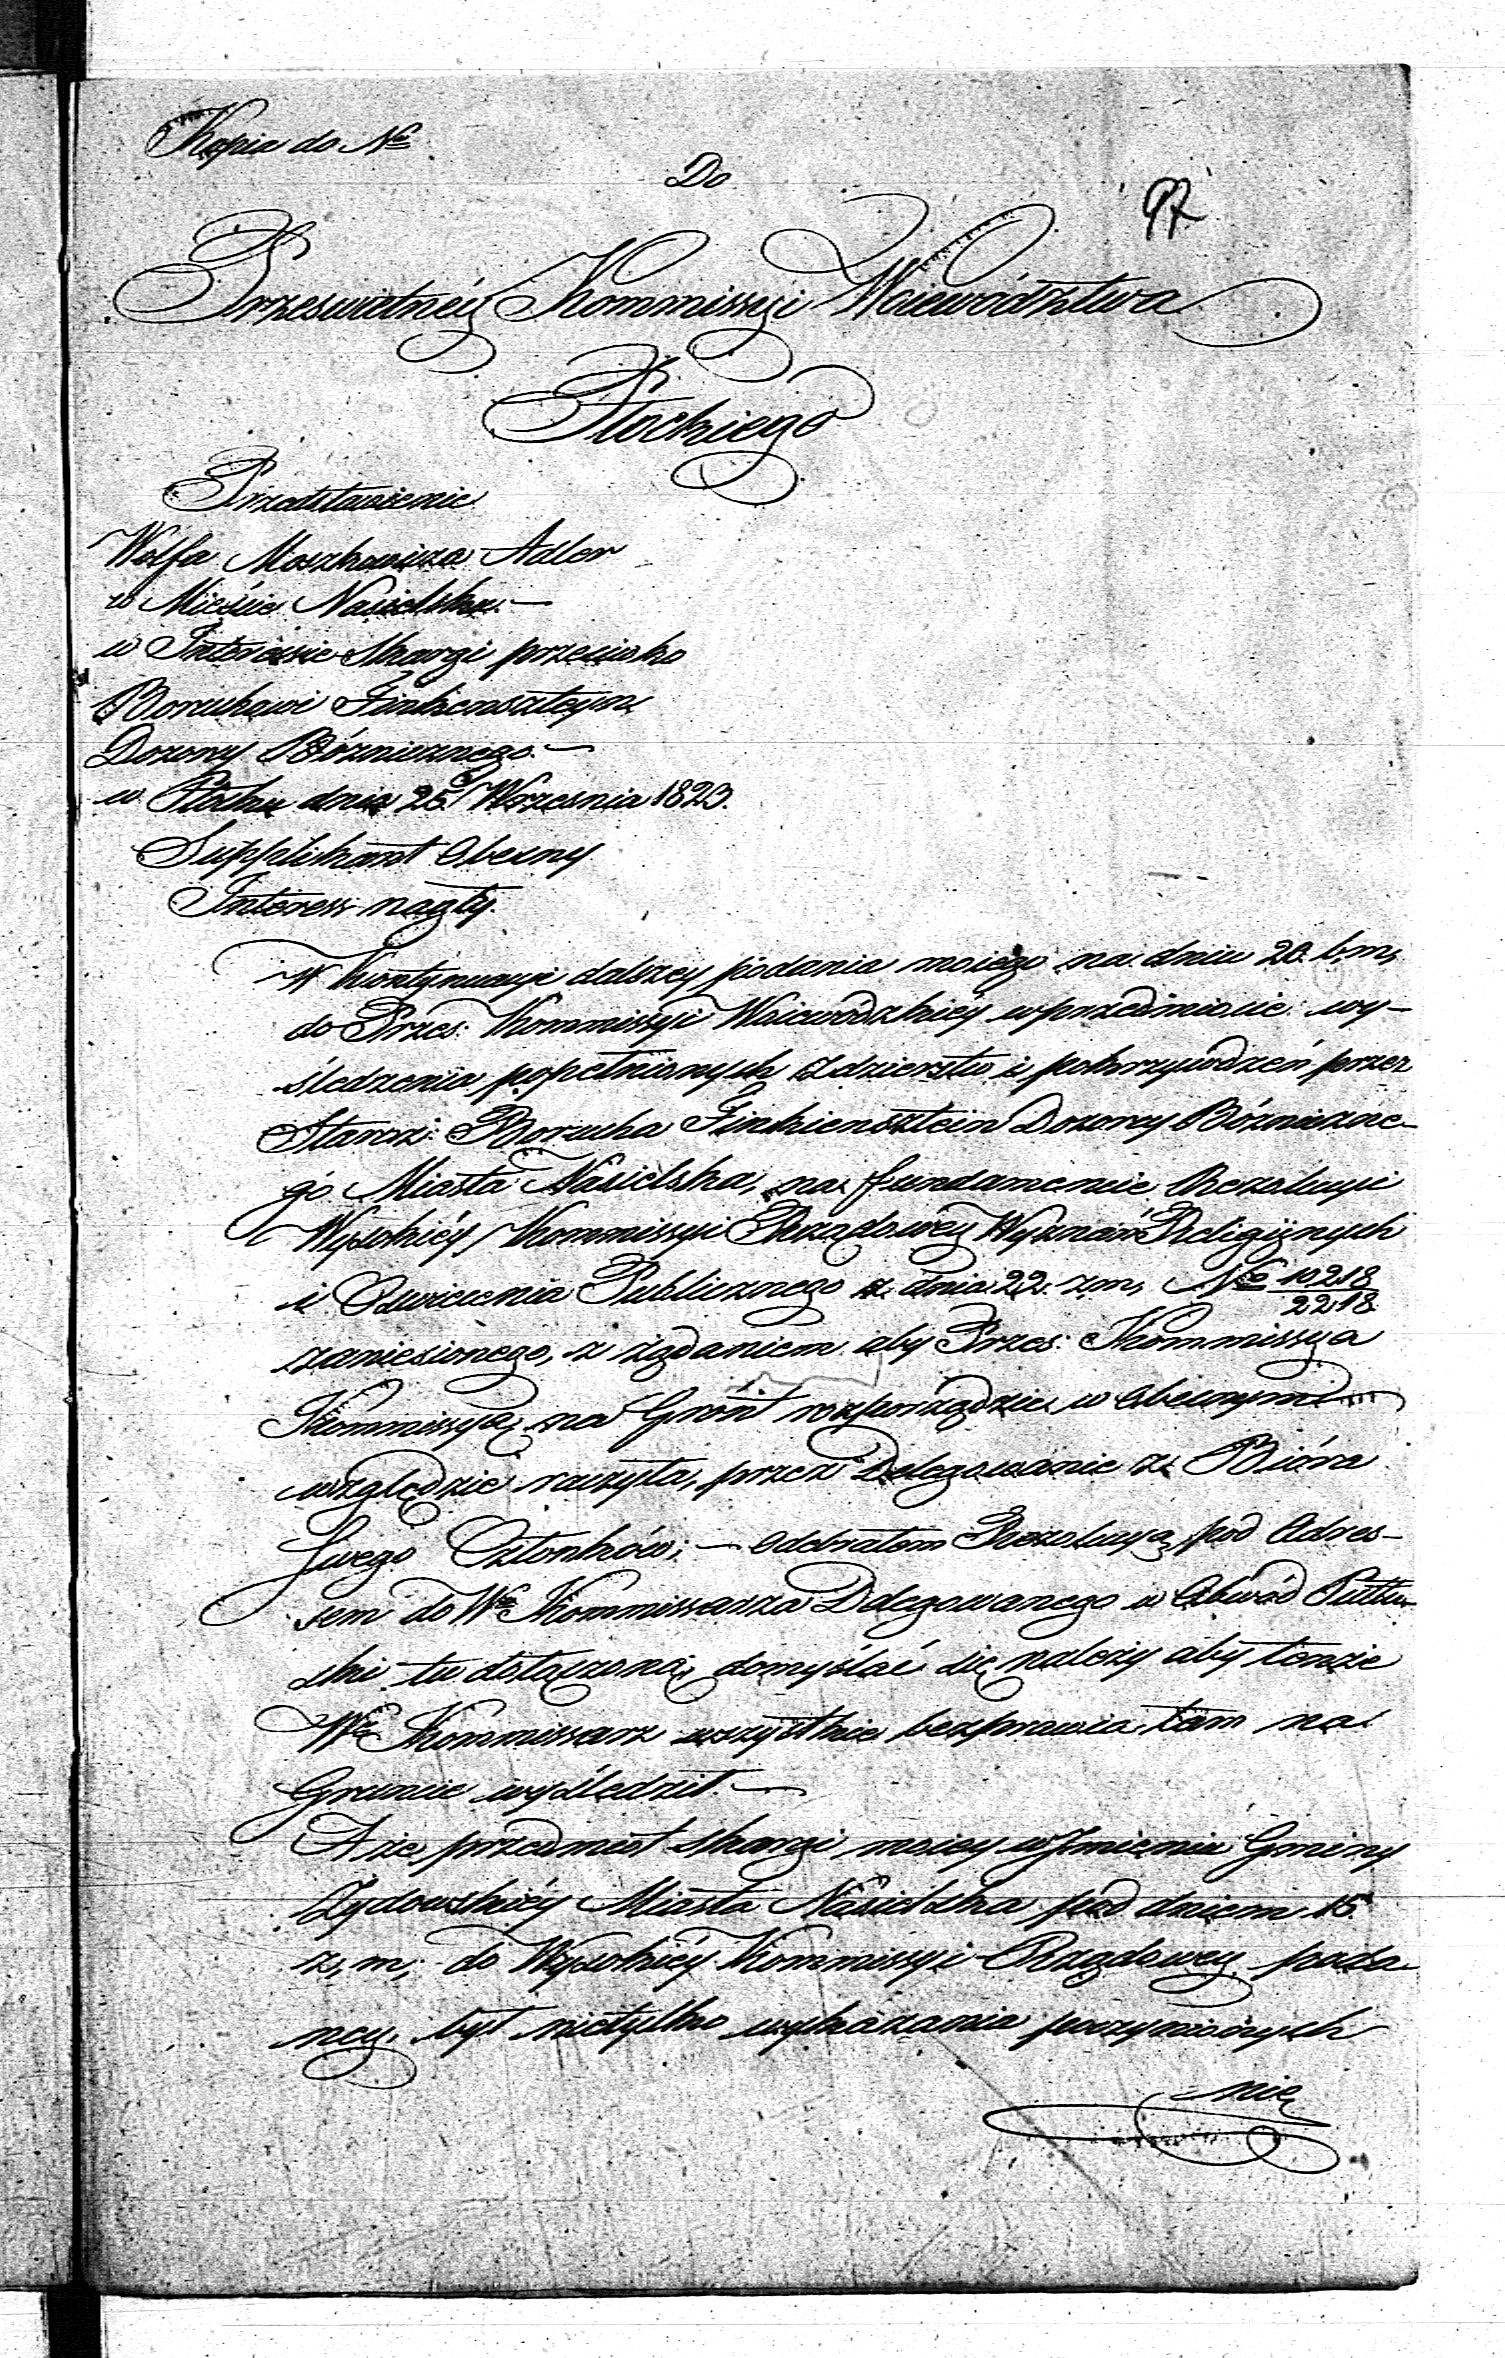 Kopia do Nº
Do
97
Prześwietnéy Kommissyi Woiewództwa
Płockiego
Przedstawienie
Wolfa Moszkowicza Adler
w Mieście Nasielsku. —
w Interessie Skargi przeciwko
Boruchowi Finkenszteyn
Dozorcy Bóżnicznego. —
w Płocku dnia 25 Września 1823.
Supplikant Obecny
Interess nagły.
W Kontynuacyi dalszey podania moiego na dniu 20. b. m,
do Przes: Kommissyi Woiewódzkiéy w przedmiocie wy-
śledzenia popełnionych zdzierstw i pokrzywdzeń przez
Starsz: Borucha Finkiensztein Dozorcy Bóżniczne-
go Miasta Nasielska, na fundamencie Rezolucyi
Wysokiéy Kommissyi Rządowéy Wyznań Religiynych
i Oświecenia Publicznego z dnia 22. z. m, Nº 10218/2218
zaniesionego, z żądaniem aby Przes: Kommissya
Kommissyą na Grónt rozporządzić w Obecnym
względzie raczyła, przez Delegowanie z Bióra
Swego Członków; — Odebrałem Rezolucyą pod Adres-
sem do Wº Kommissarza Delegowanego w Obwód Pułtu-
ski tu dołączoną, domyślać się należy aby tenże
Wº Kommissarz wszystkie bezprawia tam na
Gruncie wyśledził. —
A że przedmiot skargi moiey w Imieniu Gminy
Żydowskiéy Miasta Nasielska, pod dniem 15.
z. m; do Wysokiéy Kommissyi Rządowey poda-
ney, był nietylko wykazania poczynionych